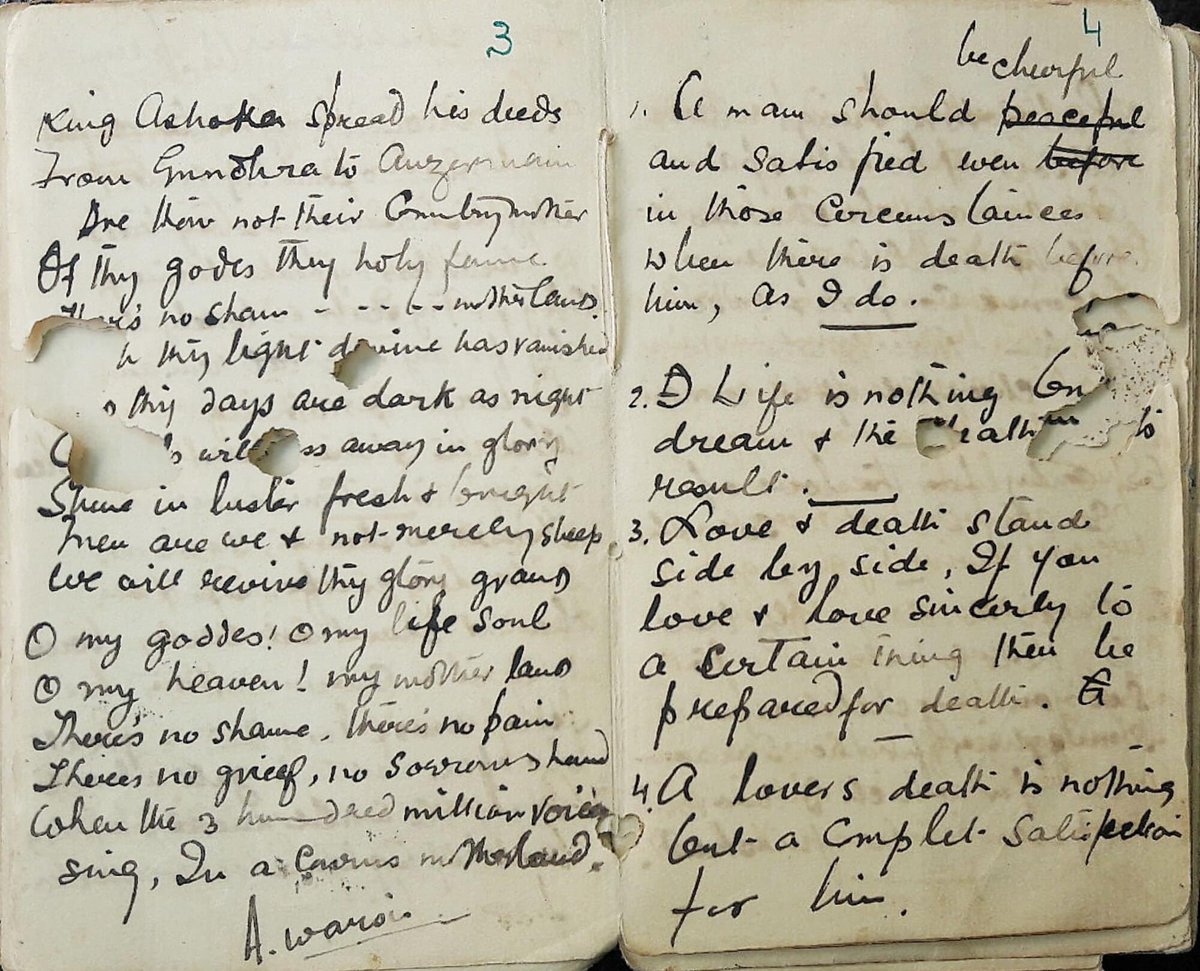 3
King Ashoka spread his deeds
From Gundhra to
Are thou not their Country mother
Of thy godes they holy fame
no sham - - - - motherland.
thy light devine has vanished
thy days are dark as night
will away in glory
Shine in luster fresh & bright
Men are we & not merely sheep
We will revive thy glory grand
O my goddes! O my life soul
O my heaven! my mother land
There's no shame, there's no pain
Theres no grief, no sorrows hand
When the 3 hundred million voices
sing, In a motherland.
A.
4
be cheerful
1. A man should peaceful
and satisfied even before
in those Cercumstainces
when there is death before
him, as I do.
2. Life is nothing
dream & the to
result.
3. Love & death stand
side by side, If you
love & love sincerly to
a certain thing then be
prepared for death.
4. A lovers death is nothing
but a complet satisfection
for him.